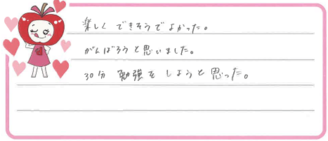 楽しくできそうでよかった。
がんばろうと思いました。
30分 勉強をしようと思った。